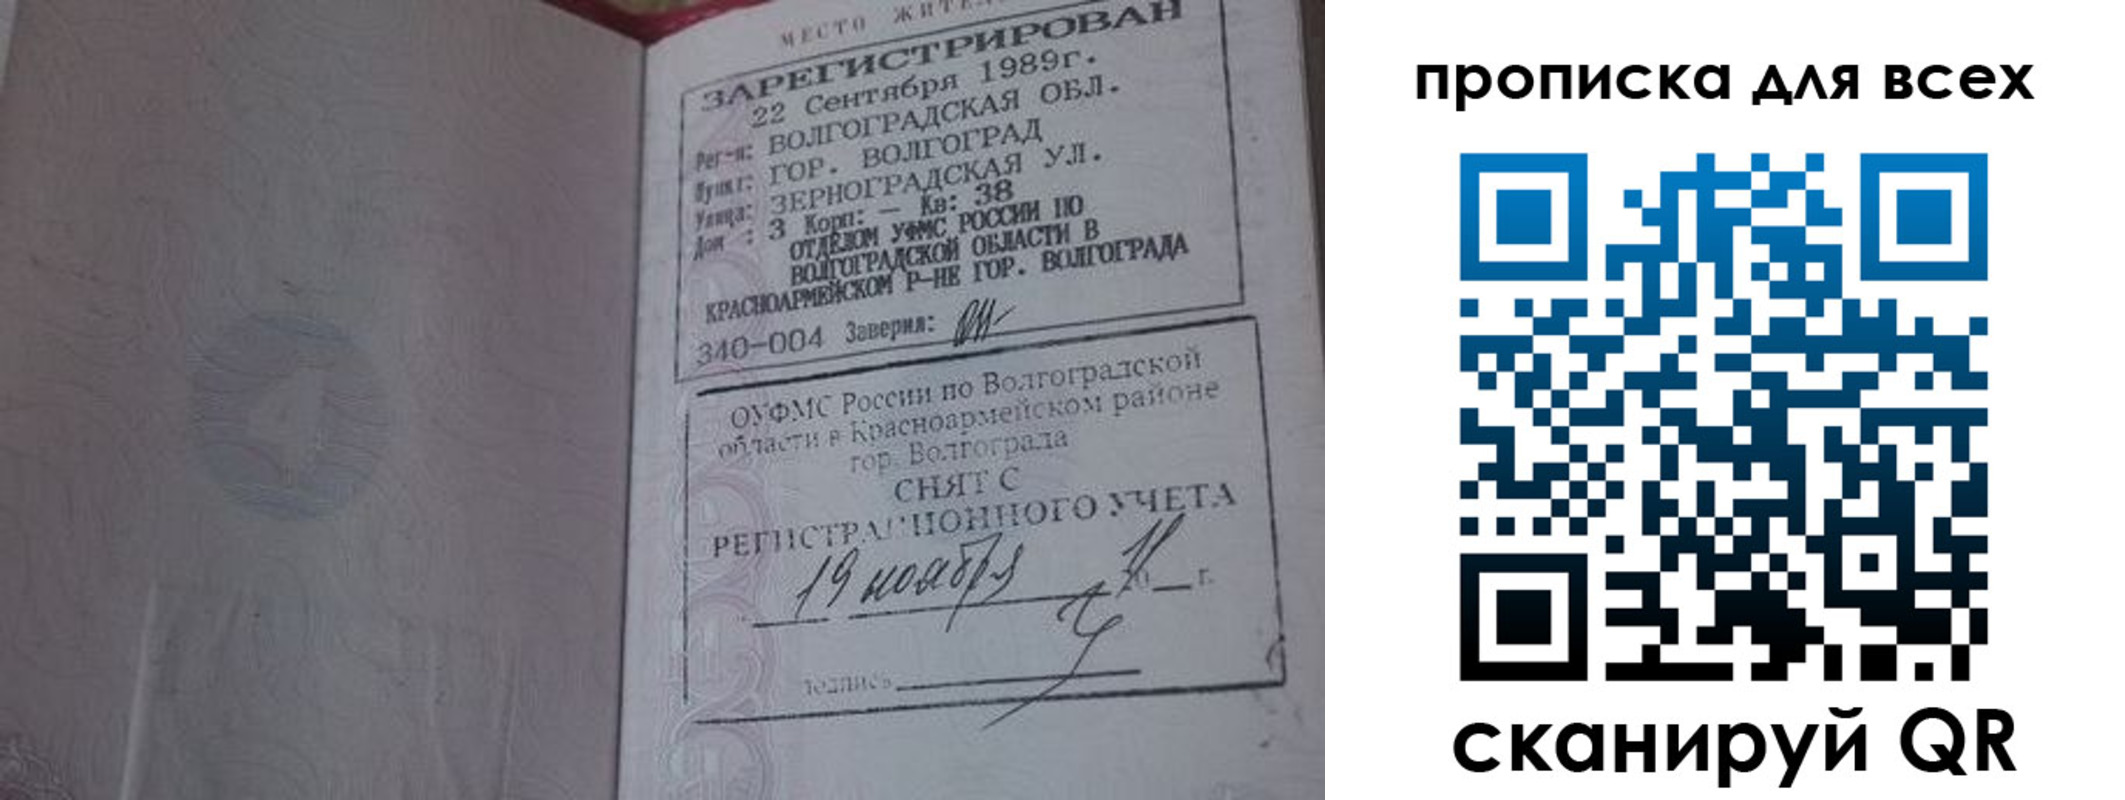 МЕСТО ЖИТЕЛ
ЗАРЕГИСТРИРОВАН
22 Сентября 1989г.
Рег-н: ВОЛГОГРАДСКАЯ ОБЛ.
Пункт: ГОР. ВОЛГОГРАД
Улица: ЗЕРНОГРАДСКАЯ УЛ.
Дом : 3 Корп: — Кв: 38
ОТДЕЛОМ УФМС РОССИИ ПО
ВОЛГОГРАДСКОЙ ОБЛАСТИ В
КРАСНОАРМЕЙСКОМ Р-НЕ ГОР. ВОЛГОГРАДА
340-004 Заверил:
ОУФМС России по Волгоградской
области в Красноармейском районе
гор. Волгограда
СНЯТ С
РЕГИСТРАЦИОННОГО УЧЕТА
19 ноября 20 11 г.
подпись
прописка для всех
сканируй QR